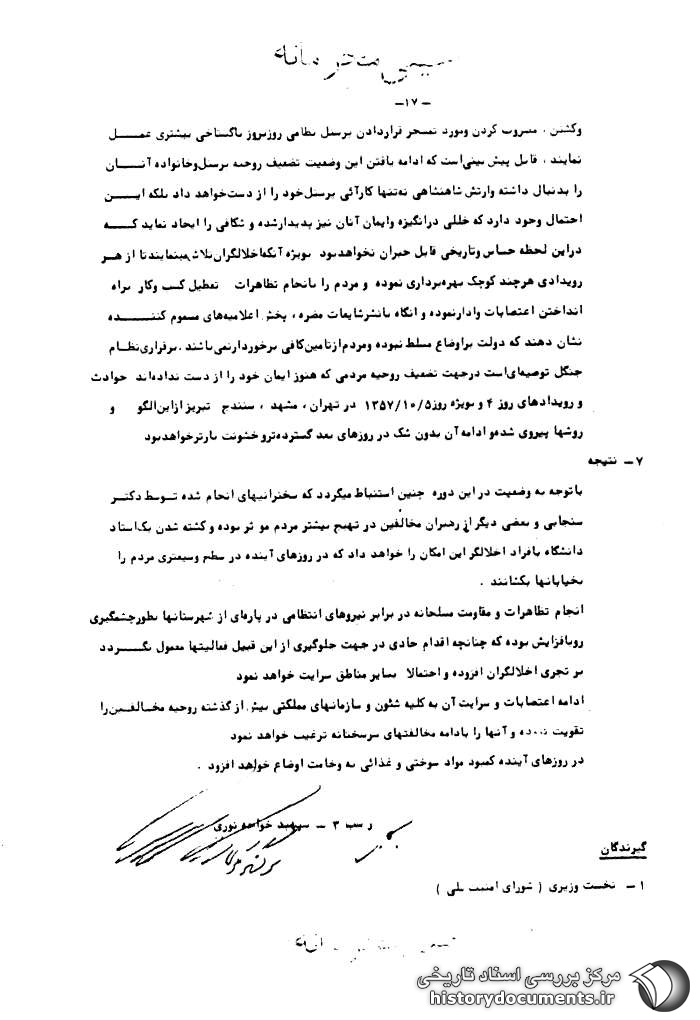 -۱۷-
وکشتن ، مضروب کردن ومورد تمسخر قراردادن پرسنل نظامی روزبروز باگستاخی بیشتری عمل
نمایند ، قابل پیش بینی‌است که ادامه یافتن این وضعیت تضعیف روحیه پرسنل‌وخانواده آنان
را بدنبال داشته وارتش شاهنشاهی نه‌تنها کارآئی پرسنل‌خود را از دست‌خواهد داد بلکه این
احتمال وجود دارد که خللی درانگیزه وایمان آنان نیز پدیدارشده و شکافی را ایجاد نماید که
دراین لحظه حساس وتاریخی قابل جبران نخواهدبود بویژه آنکه‌اخلالگران‌تلاش‌مینمایندتا از هر
رویدادی هرچند کوچک بهره‌برداری نموده و مردم را بانجام تظاهرات تعطیل کسب وکار براه
انداختن اعتصابات وادارنموده و انگاه بانشرشایعات مضره ، پخش اعلامیه‌های مسموم کننده
نشان دهند که دولت براوضاع مسلط نبوده ومردم‌ازتامین‌کافی برخوردارنمی‌باشند ،برقراری‌نظام
جنگل توصیه‌ای‌است درجهت تضعیف روحیه مردمی که هنوز ایمان خود را از دست نداده‌اند حوادث
و رویدادهای روز ۴ و بویژه روز۱۳۵۷/۱۰/۵ در تهران ، مشهد ، سنندج تبریز ازاین‌الگو و
روشها پیروی شده‌و ادامه آن بدون شک در روزهای بعد گسترده‌ترو خشونت بارترخواهدبود
۷- نتیجه
باتوجه به وضعیت در این دوره چنین استنباط میگردد که سخنرانیهای انجام شده توسط دکتر
سنجابی و بعضی دیگر از رهبران مخالفین در تهیج بیشتر مردم مو ثر بوده و کشته شدن یک‌استاد
دانشگاه بافراد اخلالگر این امکان را خواهد داد که در روزهای آینده در سطح وسیعتری مردم را
بخیابانها بکشانند .
انجام تظاهرات و مقاومت مسلحانه در برابر نیروهای انتظامی در پاره‌ای از شهرستانها بطورچشمگیری
روبافزایش بوده که چنانچه اقدام حادی در جهت جلوگیری از این قبیل فعالیتها معمول نگردد
بر تجری اخلالگران افزوده و احتمالا بسایر مناطق سرایت خواهد نمود
ادامه اعتصابات و سرایت آن به کلیه شئون و سازمانهای مملکتی بیش از گذشته روحیه مخالفین‌را
تقویت نموده و آنها را بادامه مخالفتهای سرسختانه ترغیب خواهد نمود
در روزهای آینده کمبود مواد سوختی و غذائی به وخامت اوضاع خواهد افزود .
ر سب ۳ - سپهبد خواجه نوری
گیرندگان
۱- نخست وزیری ( شورای امنیت ملی )
مرکز بررسی اسناد تاریخی
historydocuments.ir